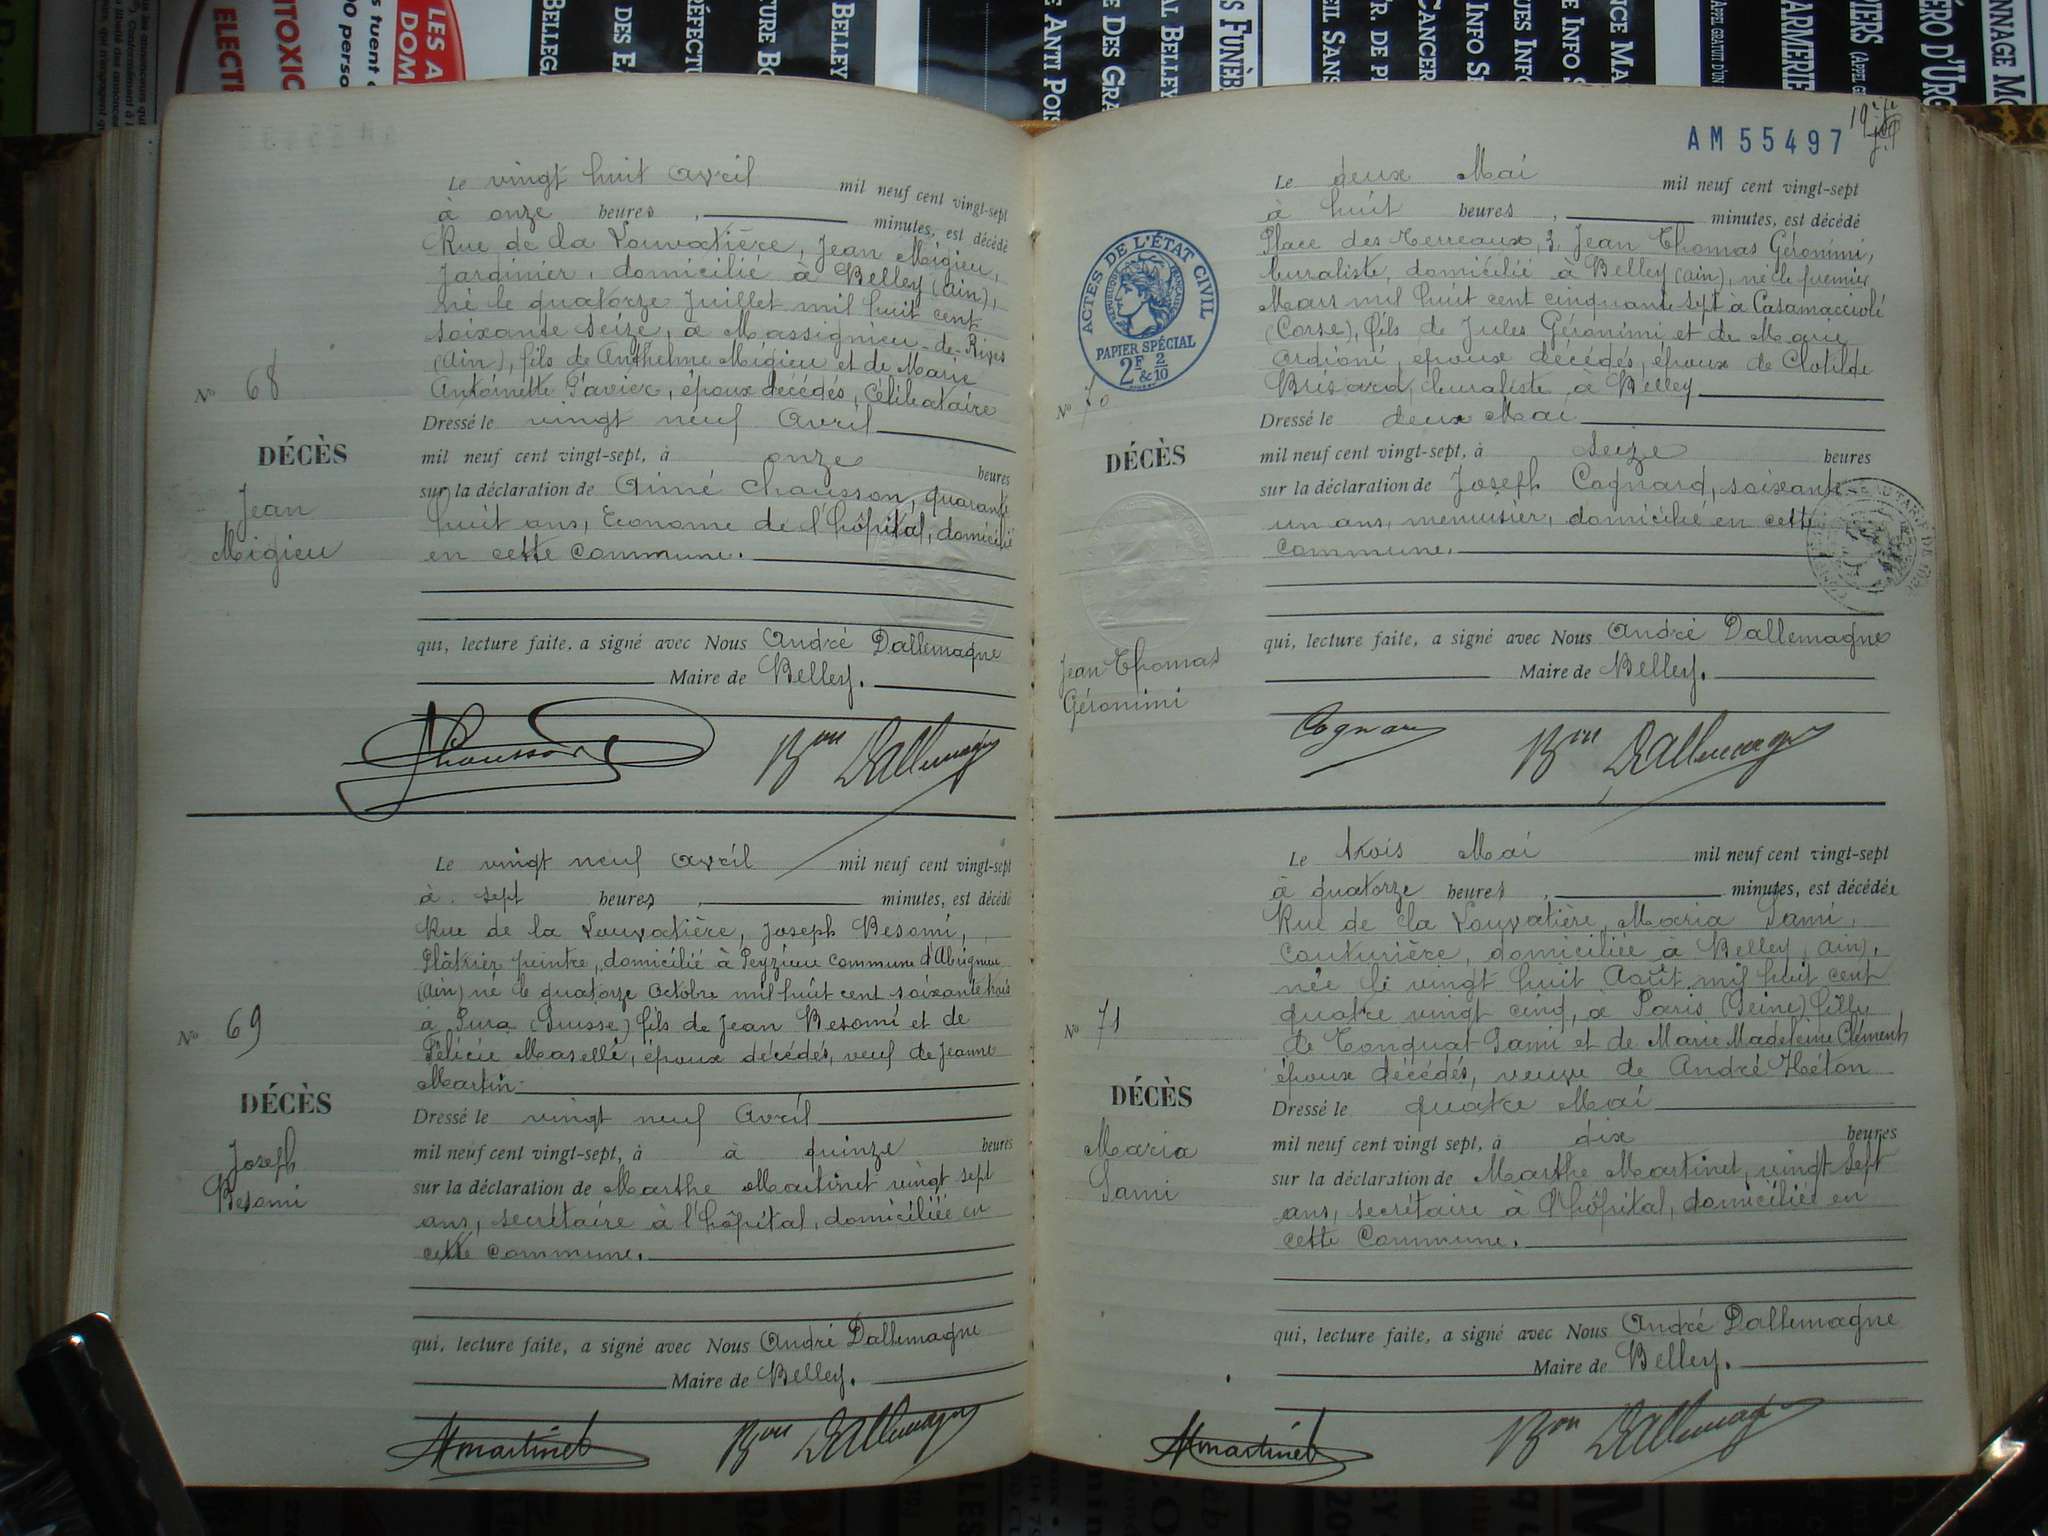 Le vingt huit Avril mil neuf cent vingt-sept
à onze heures, minutes, est décédé
Rue de la Louvatière, Jean Migieu,
Jardinier, domicilié à Belley (Ain),
né le quatorze Juillet mil huit cent
soixante seize, à Massignieu-de-Rives
(Ain), fils de Anthelme Migieu et de Marie
Antoinette Pavier, époux décédés, Célibataire
Dressé le vingt neuf Avril
mil neuf cent vingt-sept, à onze heures
sur la déclaration de Aimé Chausson, quarante
huit ans, Econome de l'hôpital, domicilié
en cette commune.
qui, lecture faite, a signé avec Nous André Dallemagne
Maire de Belley.
No 68
DÉCÈS
Jean
Migieu
Chausson Bon Dallemagne
Le vingt neuf Avril mil neuf cent vingt-sept
à sept heures, minutes, est décédé
Rue de la Louvatière, Joseph Besomi,
Plâtrier peintre, domicilié à Peyzieu commune d'Arbignieu
(Ain) né le quatorze Octobre mil huit cent soixante trois
à Pura (Suisse) fils de Jean Besomi et de
Félicie Maselli, époux décédés, veuf de Jeanne
Martin
Dressé le vingt neuf Avril
mil neuf cent vingt-sept, à à quinze heures
sur la déclaration de Marthe Martinet vingt sept
ans, secrétaire à l'hôpital, domiciliée en
cette commune.
qui, lecture faite, a signé avec Nous André Dallemagne
Maire de Belley.
No 69
DÉCÈS
Joseph
Besomi
Mmartinet Bon Dallemagne
AM 55497
Le deux Mai mil neuf cent vingt-sept
à huit heures, minutes, est décédé
Place des Terreaux, 3, Jean Thomas Géronimi,
buraliste, domicilié à Belley (Ain), né le premier
Mars mil huit cent cinquante sept à Casamaccioli
(Corse), fils de Jules Géronimi et de Marie
Ordioni, époux décédés, époux de Clotilde
Brisard, buraliste à Belley
Dressé le deux Mai
mil neuf cent vingt-sept, à seize heures
sur la déclaration de Joseph Cognard, soixante
un ans, menuisier, domicilié en cette
commune.
qui, lecture faite, a signé avec Nous André Dallemagne
Maire de Belley.
ACTES DE L'ÉTAT CIVIL
RÉPUBLIQUE FRANÇAISE
PAPIER SPÉCIAL
2F & 2/10
No 70
DÉCÈS
Jean Thomas
Géronimi
Cognard Bon Dallemagne
Le trois Mai mil neuf cent vingt-sept
à quatorze heures, minutes, est décédée
Rue de la Louvatière, Maria Lami,
couturière, domiciliée à Belley (Ain),
née le vingt huit Août mil huit cent
quatre vingt cinq, à Paris (Seine) fille
de Tonquat Lami et de Marie Madeleine Clément
époux décédés, veuve de André Héton
Dressé le quatre Mai
mil neuf cent vingt sept, à dix heures
sur la déclaration de Marthe Martinet, vingt sept
ans, secrétaire à l'hôpital, domiciliée en
cette Commune.
qui, lecture faite, a signé avec Nous André Dallemagne
Maire de Belley.
No 71
DÉCÈS
Maria
Lami
Mmartinet Bon Dallemagne